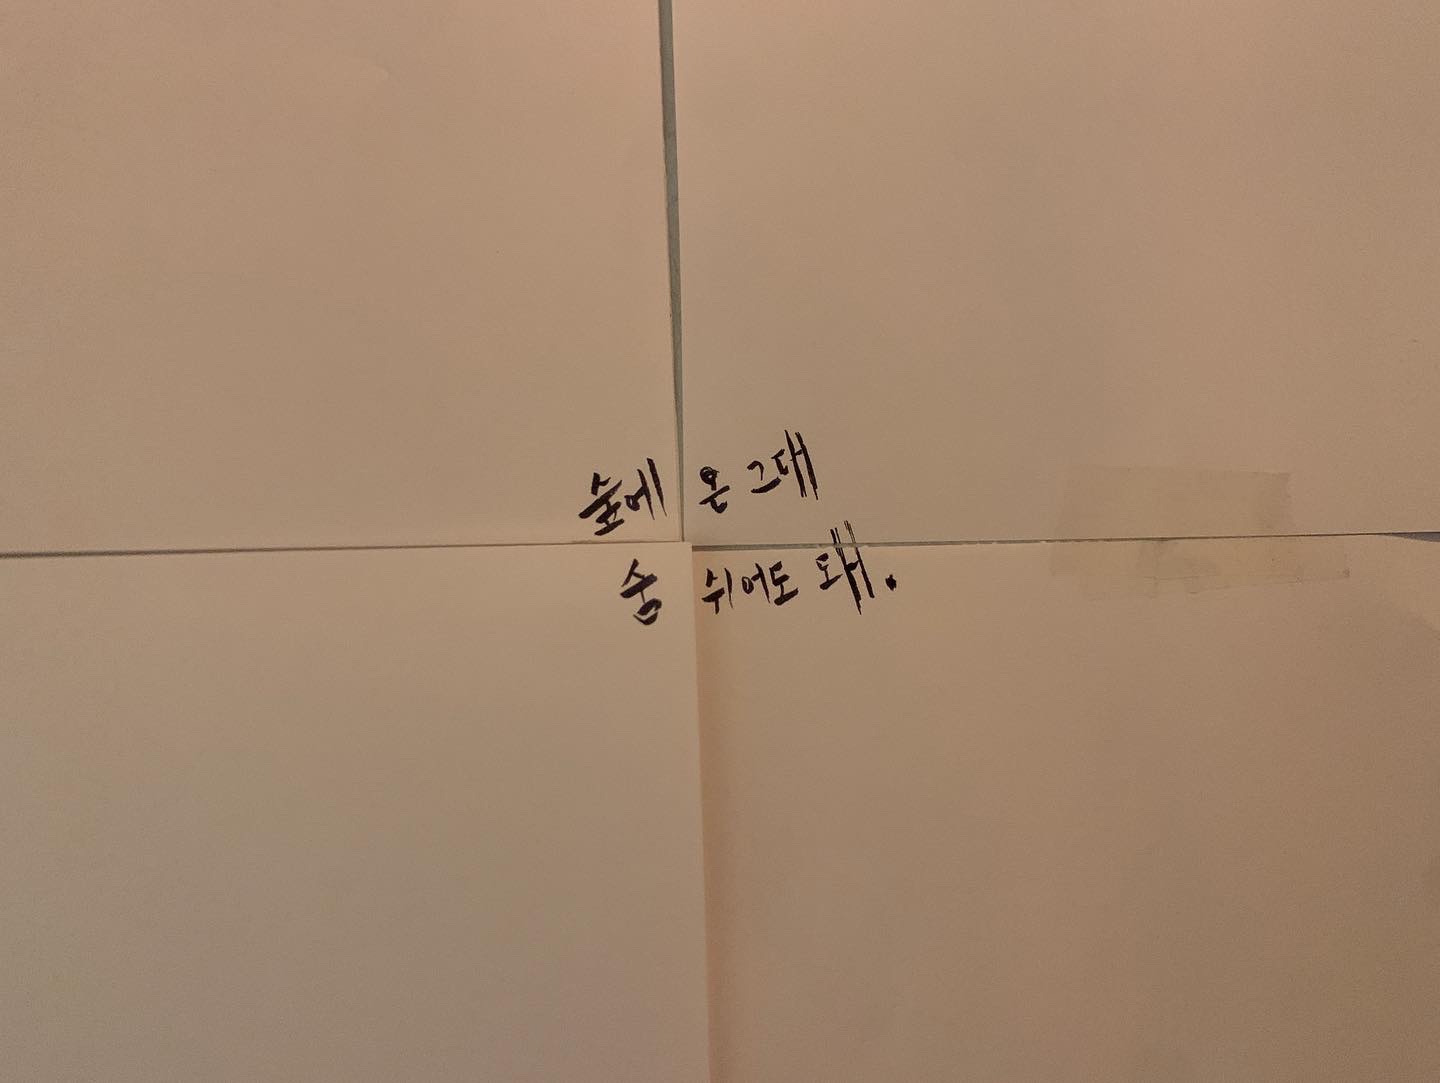 숲에 온 그대
숨 쉬어도 돼.